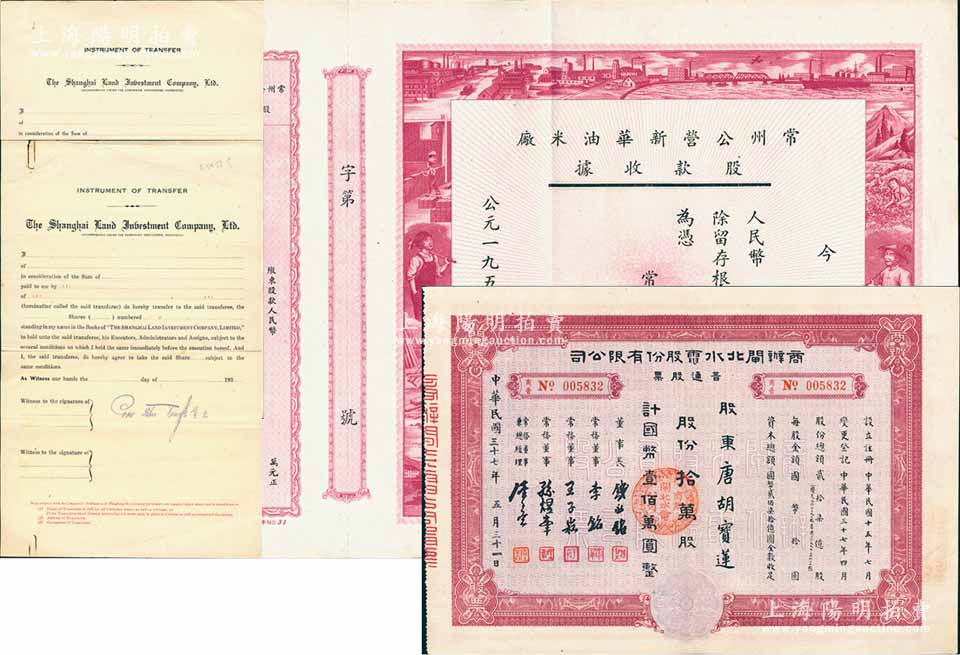 上海陽明拍賣
INSTRUMENT OF TRANSFER
The Shanghai Land Investment Company, Ltd.
I
of
in consideration of the Sum of
INSTRUMENT OF TRANSFER
The Shanghai Land Investment Company, Ltd.
I
of
in consideration of the Sum of
paid to me by
of
(hereinafter called the said transferee) do hereby transfer to the said transferee, the
Shares ( ) numbered
standing in my name in the Books of "THE SHANGHAI LAND INVESTMENT COMPANY, LIMITED,"
to hold unto the said transferee, his Executors, Administrators and Assigns, subject to the
several conditions on which I held the same immediately before the execution hereof. And
I, the said transferee, do hereby agree to take the said Share subject to the
same conditions.
As Witness our hands the day of 193
Witness to the signature of
Witness to the signature of
股
繳東股款人民幣
萬元正
字第
號
常州公營新華油米廠
股款收據
今
人民幣
除留存根
為憑
常
公元一九五
商辦閘北水電股份有限公司
普通股票
No 005832
No 005832
設立註冊 中華民國十五年七月
變更登記 中華民國三十七年四月
股份總額貳拾柒億股
每股金額國幣拾圓
資本總額國幣貳佰柒拾億圓全數收足
股東唐胡寶蓮
股份拾萬股
計國幣壹佰萬圓整
董事長
常務董事
常務董事
常務董事
常務董事兼總經理
中華民國三十七年五月三十一日
上海陽明拍賣
上海陽明拍賣
www.yangmingauction.com